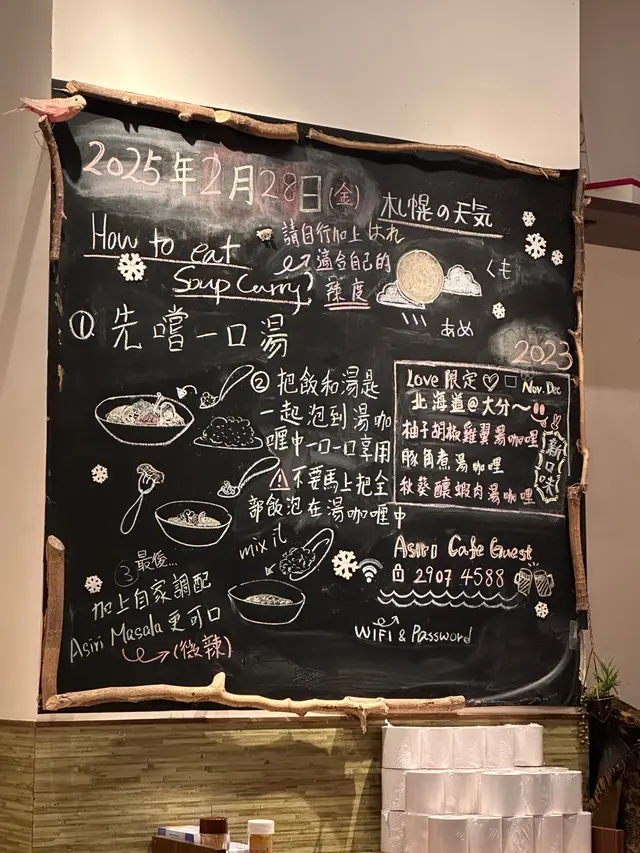 2025年2月28日(金)
札幌の天気
はれ
くも
あめ
How to eat
Soup Curry?
請自行加上
適合自己的
辣度
① 先嚐一口湯
② 把飯和湯是
一起泡到湯咖
喱中一口一口享用
不要馬上把全
部飯泡在湯咖喱中
mix it
③ 最後...
加上自家調配
Asiri Masala 更可口
(微辣)
2023
Love 限定♡ Nov. Dec
北海道@大分~
柚子胡椒雞翼湯咖哩
豚角煮湯咖哩
秋葵釀蝦肉湯咖哩
新口味
Asiri Cafe Guest
2907 4588
WiFi & Password